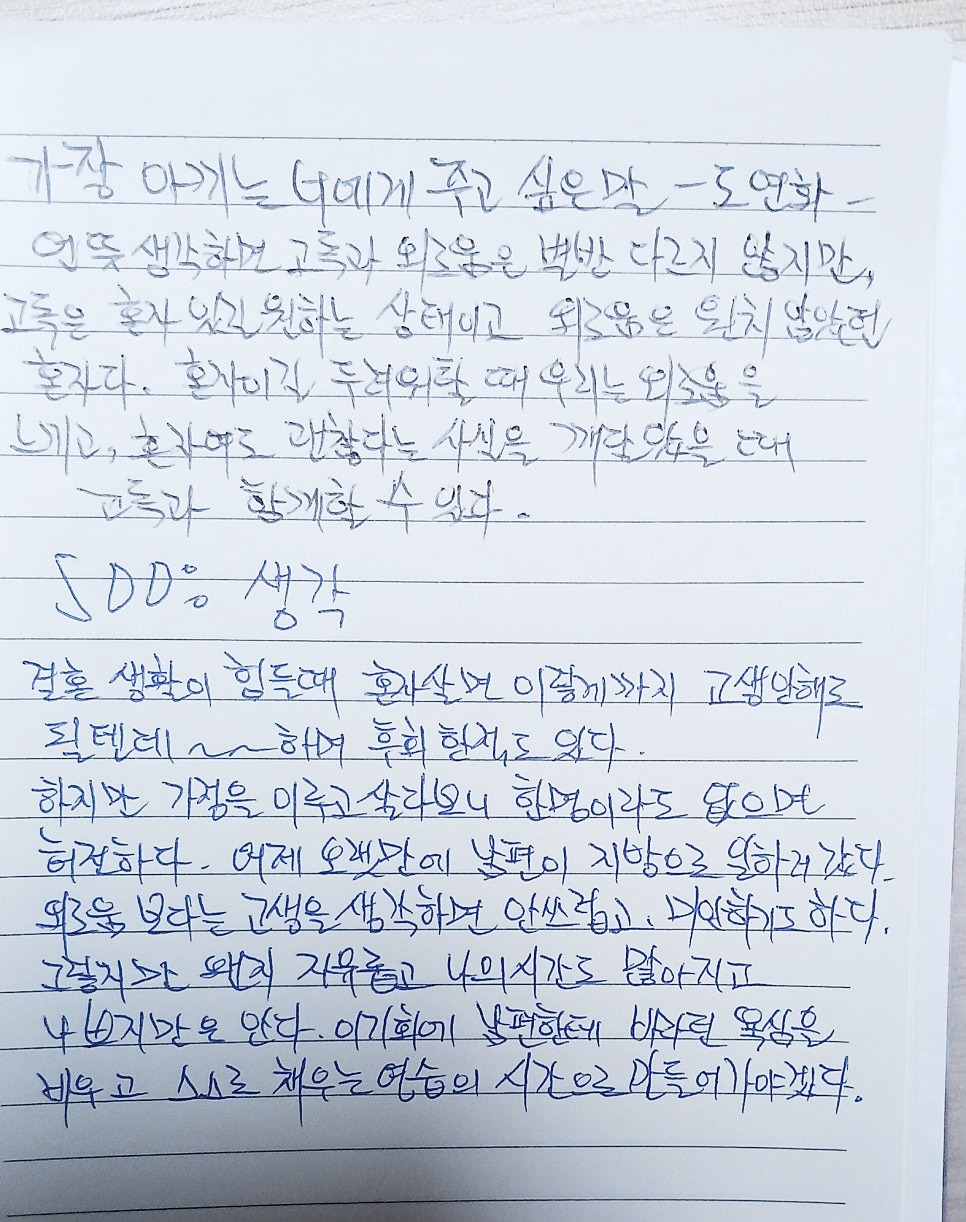 가장 아끼는 너에게 주고 싶은말 - 도연화 -
언뜻 생각하면 고독과 외로움은 별반 다르지 않지만,
고독은 혼자 있길 원하는 상태이고 외로움은 원치 않았던
혼자다. 혼자이길 두려워할 때 우리는 외로움을
느끼고, 혼자여도 괜찮다는 사실을 깨달았을 때
고독과 함께할 수 있다.
생각
결혼 생활이 힘들때 혼자살면 이렇게까지 고생안해도
될텐데 ~~하며 후회 한적도 있다.
하지만 가정을 이루고 살다보니 한명이라도 없으면
허전하다. 어제 오랫만에 남편이 지방으로 일하러 갔다.
외로움 보다는 고생을 생각하면 안쓰럽고, 미안하기도 하다.
그렇지만 왠지 자유롭고 나의시간도 많아지고
나쁘지만은 않다. 이기회에 남편한테 바라던 욕심을
비우고 스스로 채우는 연습의 시간으로 만들어가야겠다.